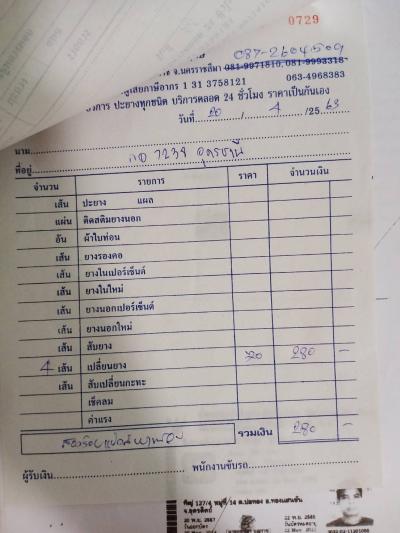 0729
087-2604509
จ.นครราชสีมา 081-9971810, 081-9993318
ผู้เสียภาษีอากร 1 31 3758121 063-4968383
ปะยางทุกชนิด บริการตลอด 24 ชั่วโมง ราคาเป็นกันเอง
วันที่ 20 / 4 / 2563
นาม
ที่อยู่ 7238 อุดรธานี
จำนวน รายการ ราคา จำนวนเงิน
เส้น ปะยาง แผล
แผ่น ติดสติมยางนอก
อัน ผ้าใบท่อน
เส้น ยางรองคอ
เส้น ยางในเปอร์เซ็นต์
เส้น ยางในใหม่
เส้น ยางนอกเปอร์เซ็นต์
เส้น ยางนอกใหม่
เส้น สับยาง
4 เส้น เปลี่ยนยาง 70 280 -
เส้น สับเปลี่ยนกะทะ
เช็คลม
ค่าแรง
สองร้อยแปดสิบบาท รวมเงิน 280 -
ผู้รับเงิน พนักงานขับรถ
ที่อยู่ 127/4 หมู่ที่ 14 ต.บ่อทอง อ.ทองแสนขัน
จ.อุตรดิตถ์